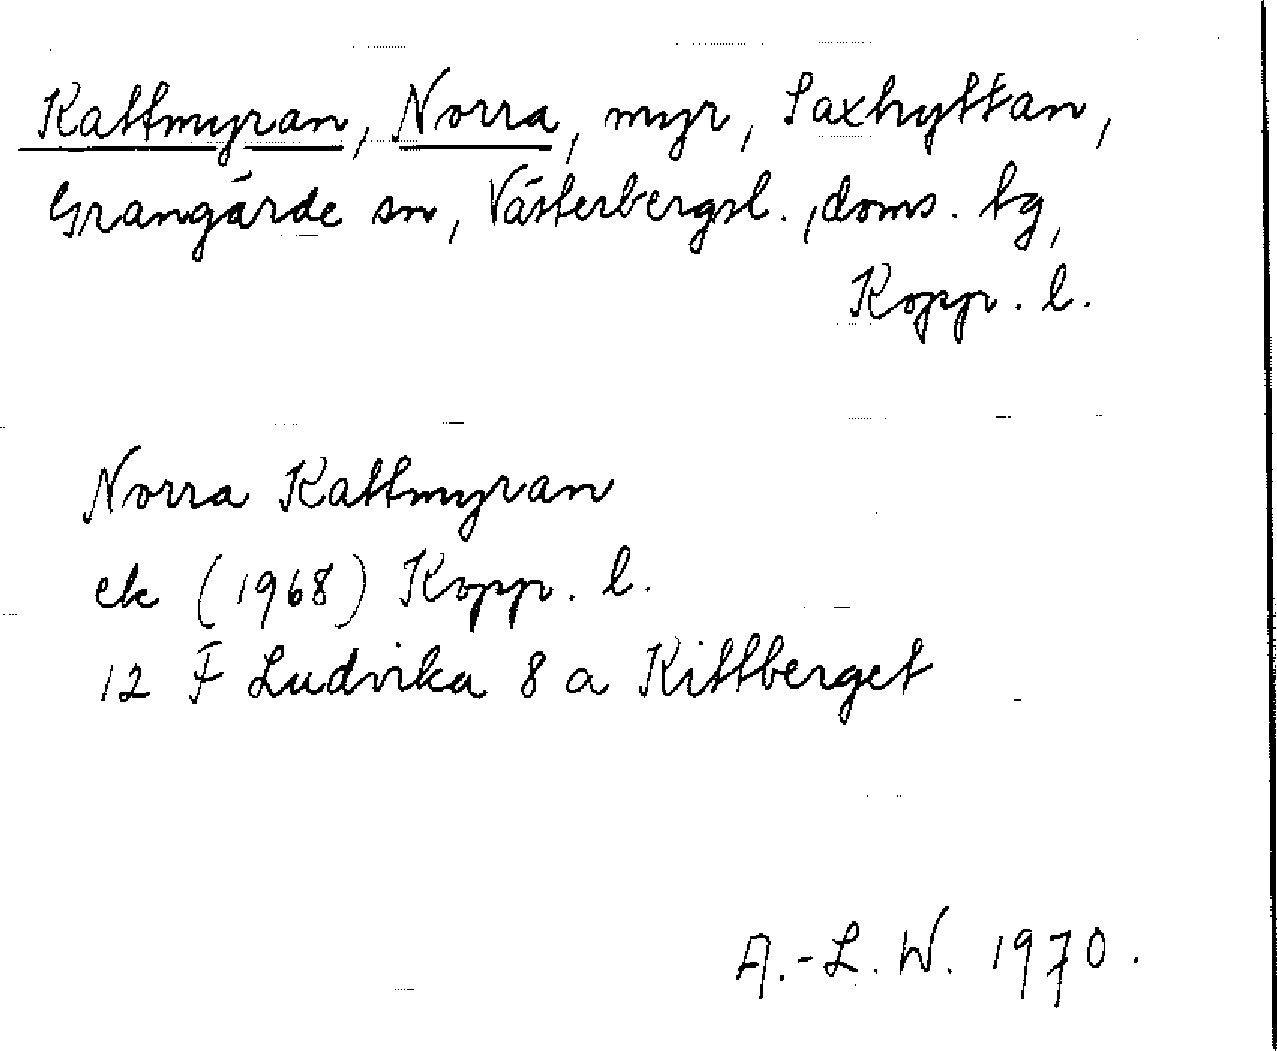 Kattmyran, Norra, myr, Saxhyttan,
Grangärde sn, Västerbergsl., doms. tg,
Kopp. l.
Norra Kattmyran
ek (1968) Kopp. l.
12 F Ludvika 8 a Kittberget
A.-L. W. 1970.